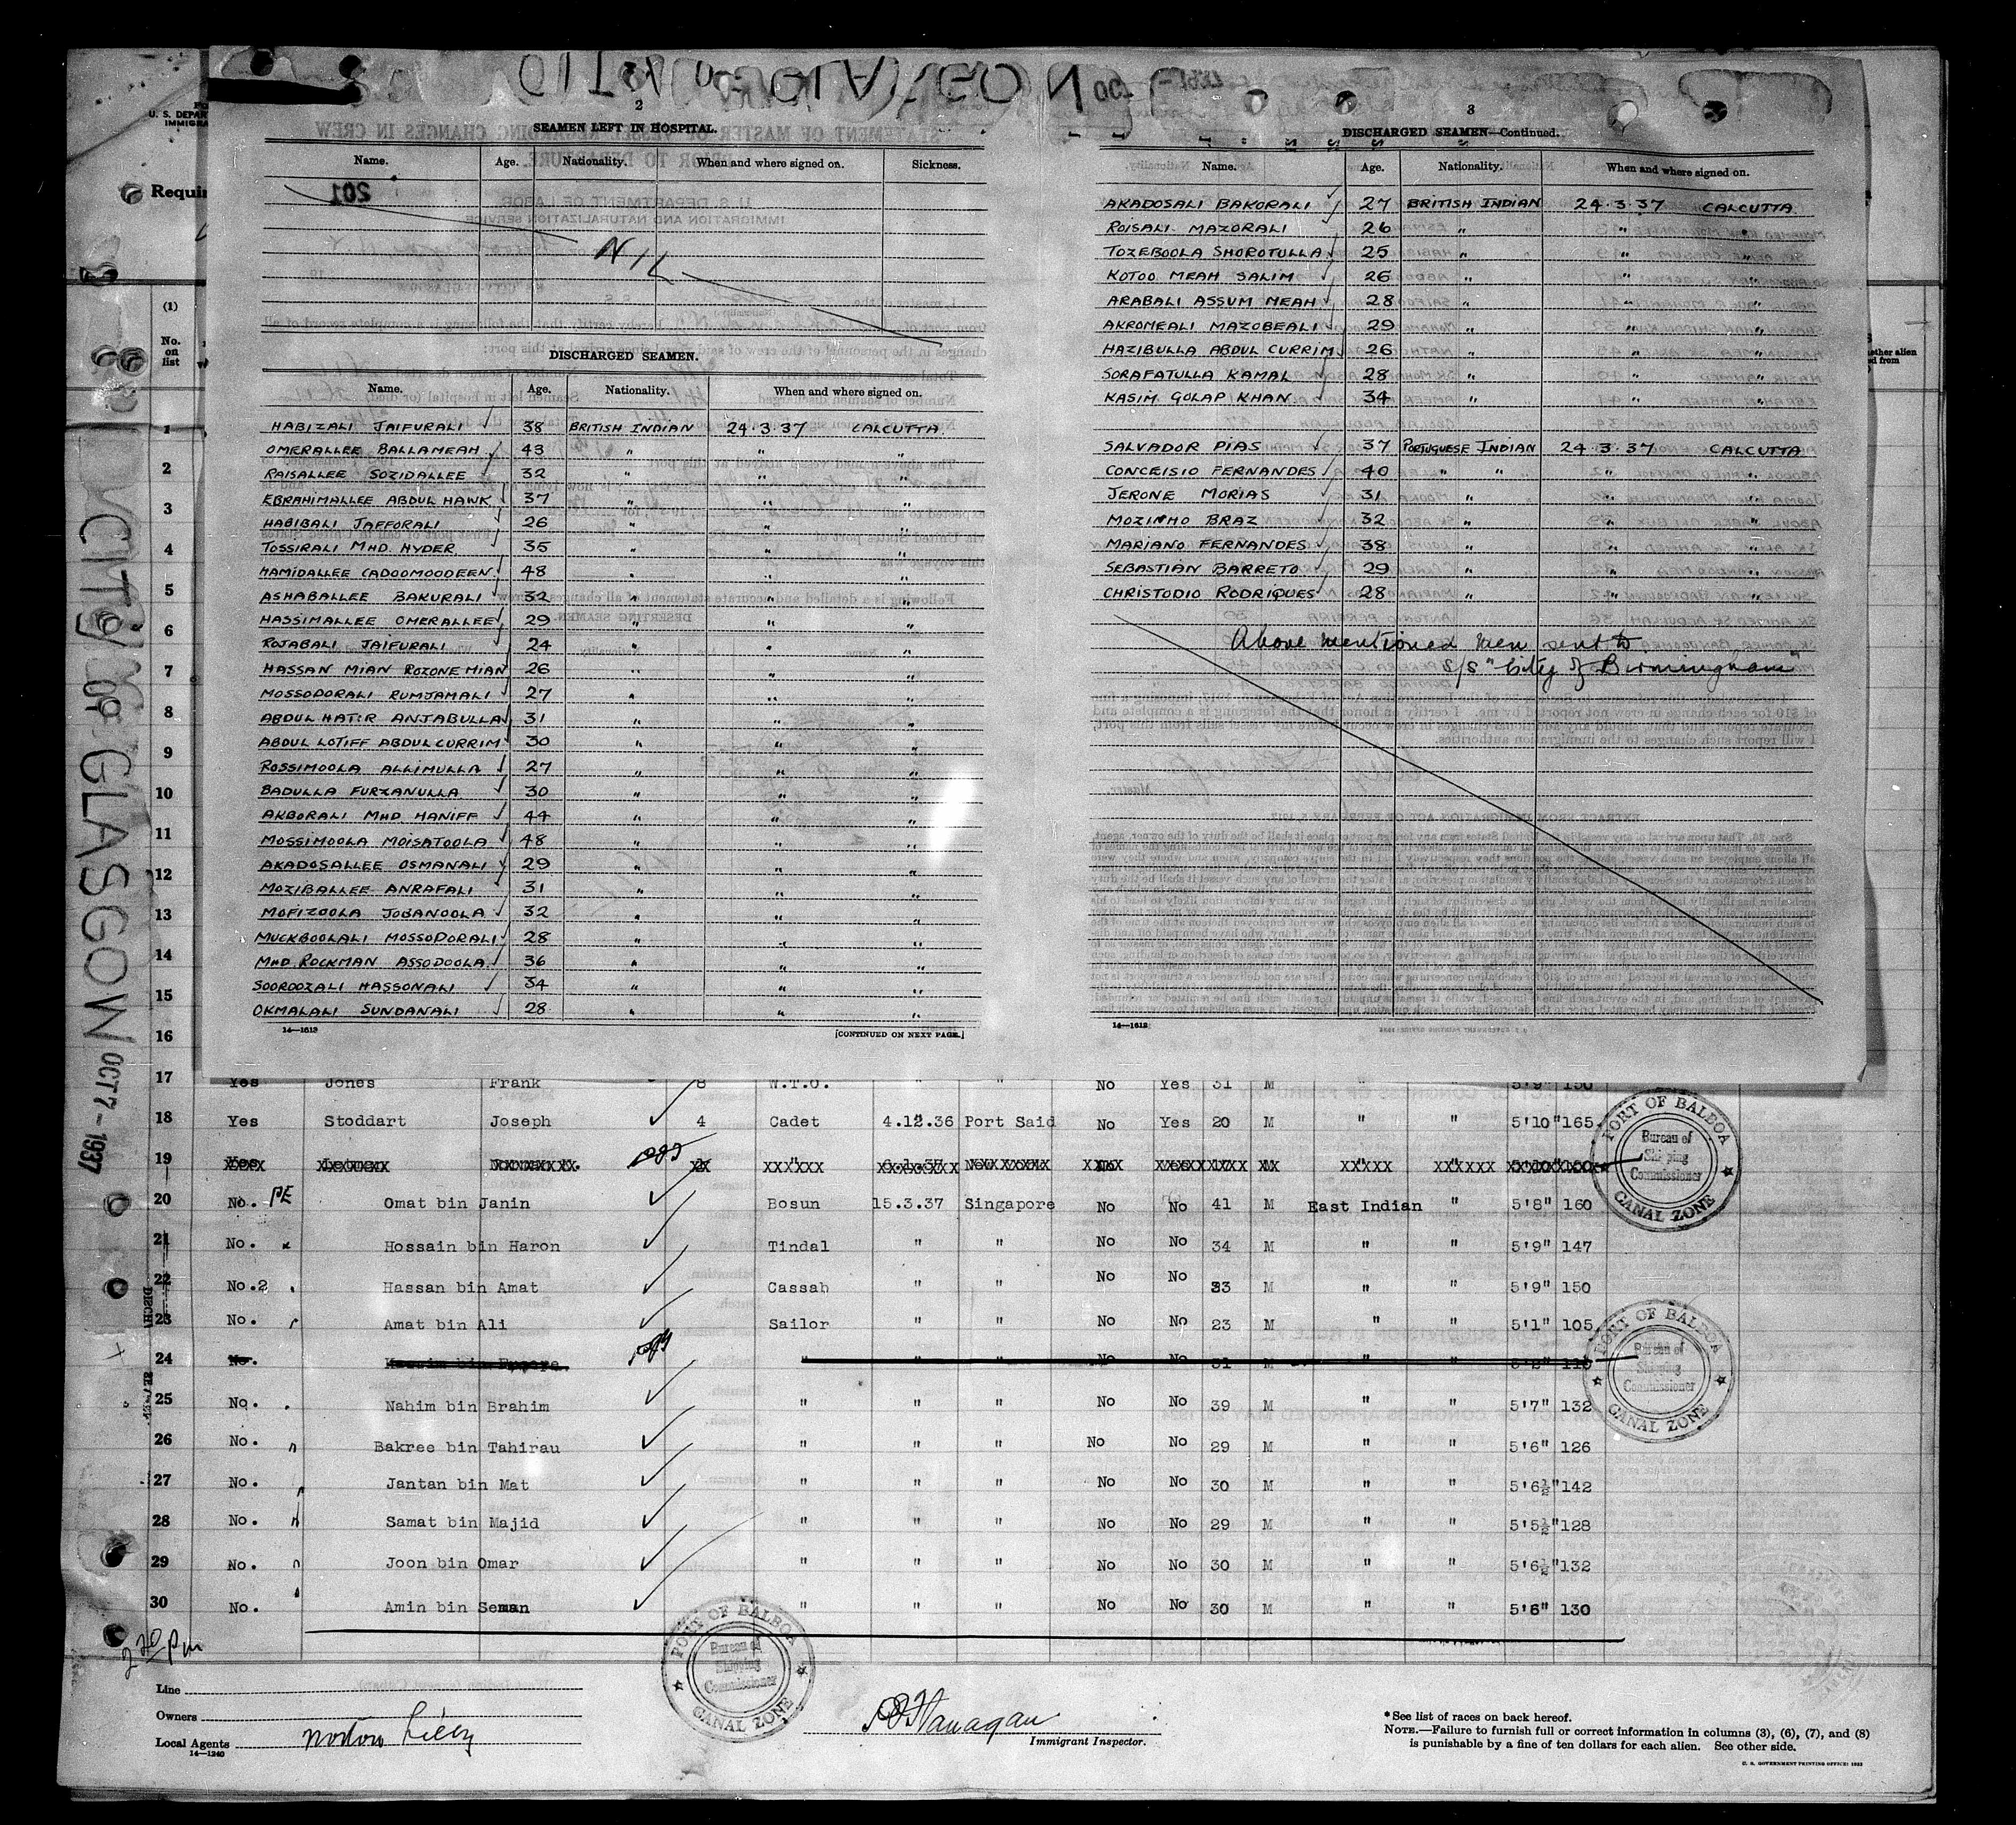 2
SEAMEN LEFT IN HOSPITAL.
Name. Age. Nationality. When and where signed on. Sickness.
201
NIL
DISCHARGED SEAMEN.
Name. Age. Nationality. When and where signed on.
HABIZALI JAIFURALI 38 BRITISH INDIAN 24.3.37 CALCUTTA.
OMERALLEE BALLAMEAH 43 " " "
RAISALLEE SOZIDALLEE 32 " " "
EBRAHIMALLEE ABDUL HAWK 37 " " "
HABIBALI JAFFORALI 26 " " "
TOSSIRALI MHD. HYDER 35 " " "
HAMIDALLEE CADOOMOODEEN 48 " " "
ASHABALLEE BAKURALI 32 " " "
HASSIMALLEE OMERALLEE 29 " " "
ROJABALI JAIFURALI 24 " " "
HASSAN MIAN ROZONE MIAN 26 " " "
MOSSODORALI RUMJAMALI 27 " " "
ABDUL HATIR ANJABULLA 31 " " "
ABDUL LOTIFF ABDUL CURRIM 30 " " "
ROSSIMOOLA ALLIMULLA 27 " " "
BADULLA FURZANULLA 30 " " "
AKBORALI MHD HANIFF 44 " " "
MOSSIMOOLA MOISATOOLA 48 " " "
AKADOSALLEE OSMANALI 29 " " "
MOZIBALLEE ANRAFALI 31 " " "
MOFIZOOLA JOBANOOLA 32 " " "
MUCKBOOLALI MOSSODORALI 28 " " "
MHD. ROCKMAN ASSODOOLA 36 " " "
SOOROOZALI HASSONALI 34 " " "
OKMALALI SUNDANALI 28 " " "
14—1613 [CONTINUED ON NEXT PAGE.]
3
DISCHARGED SEAMEN—Continued.
Name. Age. Nationality. When and where signed on.
AKADOSALI BAKORALI 27 BRITISH INDIAN 24.3.37 CALCUTTA
ROISALI MAZORALI 26 " " "
TOZEBOOLA SHOROTULLA 25 " " "
KOTOO MEAH SALIM 26 " " "
ARABALI ASSUM MEAH 28 " " "
AKROMEALI MAZOBEALI 29 " " "
HAZIBULLA ABDUL CURRIM 26 " " "
SORAFATULLA KAMAL 28 " " "
KASIM GOLAP KHAN 34 " " "
SALVADOR PIAS 37 PORTUGUESE INDIAN 24.3.37 CALCUTTA
CONCEISIO FERNANDES 40 " " " "
JERONE MORIAS 31 " " "
MOZINHO BRAZ 32 " " "
MARIANO FERNANDES 38 " " "
SEBASTIAN BARRETO 29 " " "
CHRISTODIO RODRIQUES 28 " " "
Above mentioned men sent to
S/S "City of Birmingham"
14—1613
U. S. DEPAR
IMMIGRA
Requir
(1)
No.
on
list
CITY OF GLASGOW OCT 7-1937
1
2
3
4
5
6
7
8
9
10
11
12
13
14
15
16
17 Yes Jones Frank 8 W.T.O. " " No Yes 31 M " " 5'9" 150
18 Yes Stoddart Joseph 4 Cadet 4.12.36 Port Said No Yes 20 M " " 5'10" 165
19
20 No. PE Omat bin Janin Bosun 15.3.37 Singapore No No 41 M East Indian " 5'8" 160
21 No. Hossain bin Haron Tindal " " No No 34 M " " 5'9" 147
22 No.2 Hassan bin Amat Cassab " " No No 33 M " " 5'9" 150
23 No. Amat bin Ali Sailor " " No No 23 M " " 5'1" 105
24 No. " " No No 31 M " " 5'2"
25 No. Nahim bin Brahim " " " No No 39 M " " 5'7" 132
26 No. Bakree bin Tahirau " " " No No 29 M " " 5'6" 126
27 No. Jantan bin Mat " " " No No 30 M " " 5'6½" 142
28 No. Samat bin Majid " " " No No 29 M " " 5'5½" 128
29 No. Joon bin Omar " " " No No 30 M " " 5'6½" 132
30 No. Amin bin Seman " " " No No 30 M " " 5'6" 130
PORT OF BALBOA
Bureau of
Shipping
Commissioner
CANAL ZONE
PORT OF BALBOA
Bureau of
Shipping
Commissioner
CANAL ZONE
PORT OF BALBOA
Bureau of
Shipping
Commissioner
CANAL ZONE
2 20 pm
Line
Owners
Local Agents Norton Lilly
14—1240
Flanagan
Immigrant Inspector.
*See list of races on back hereof.
NOTE.—Failure to furnish full or correct information in columns (3), (6), (7), and (8)
is punishable by a fine of ten dollars for each alien. See other side.
U. S. GOVERNMENT PRINTING OFFICE: 1932